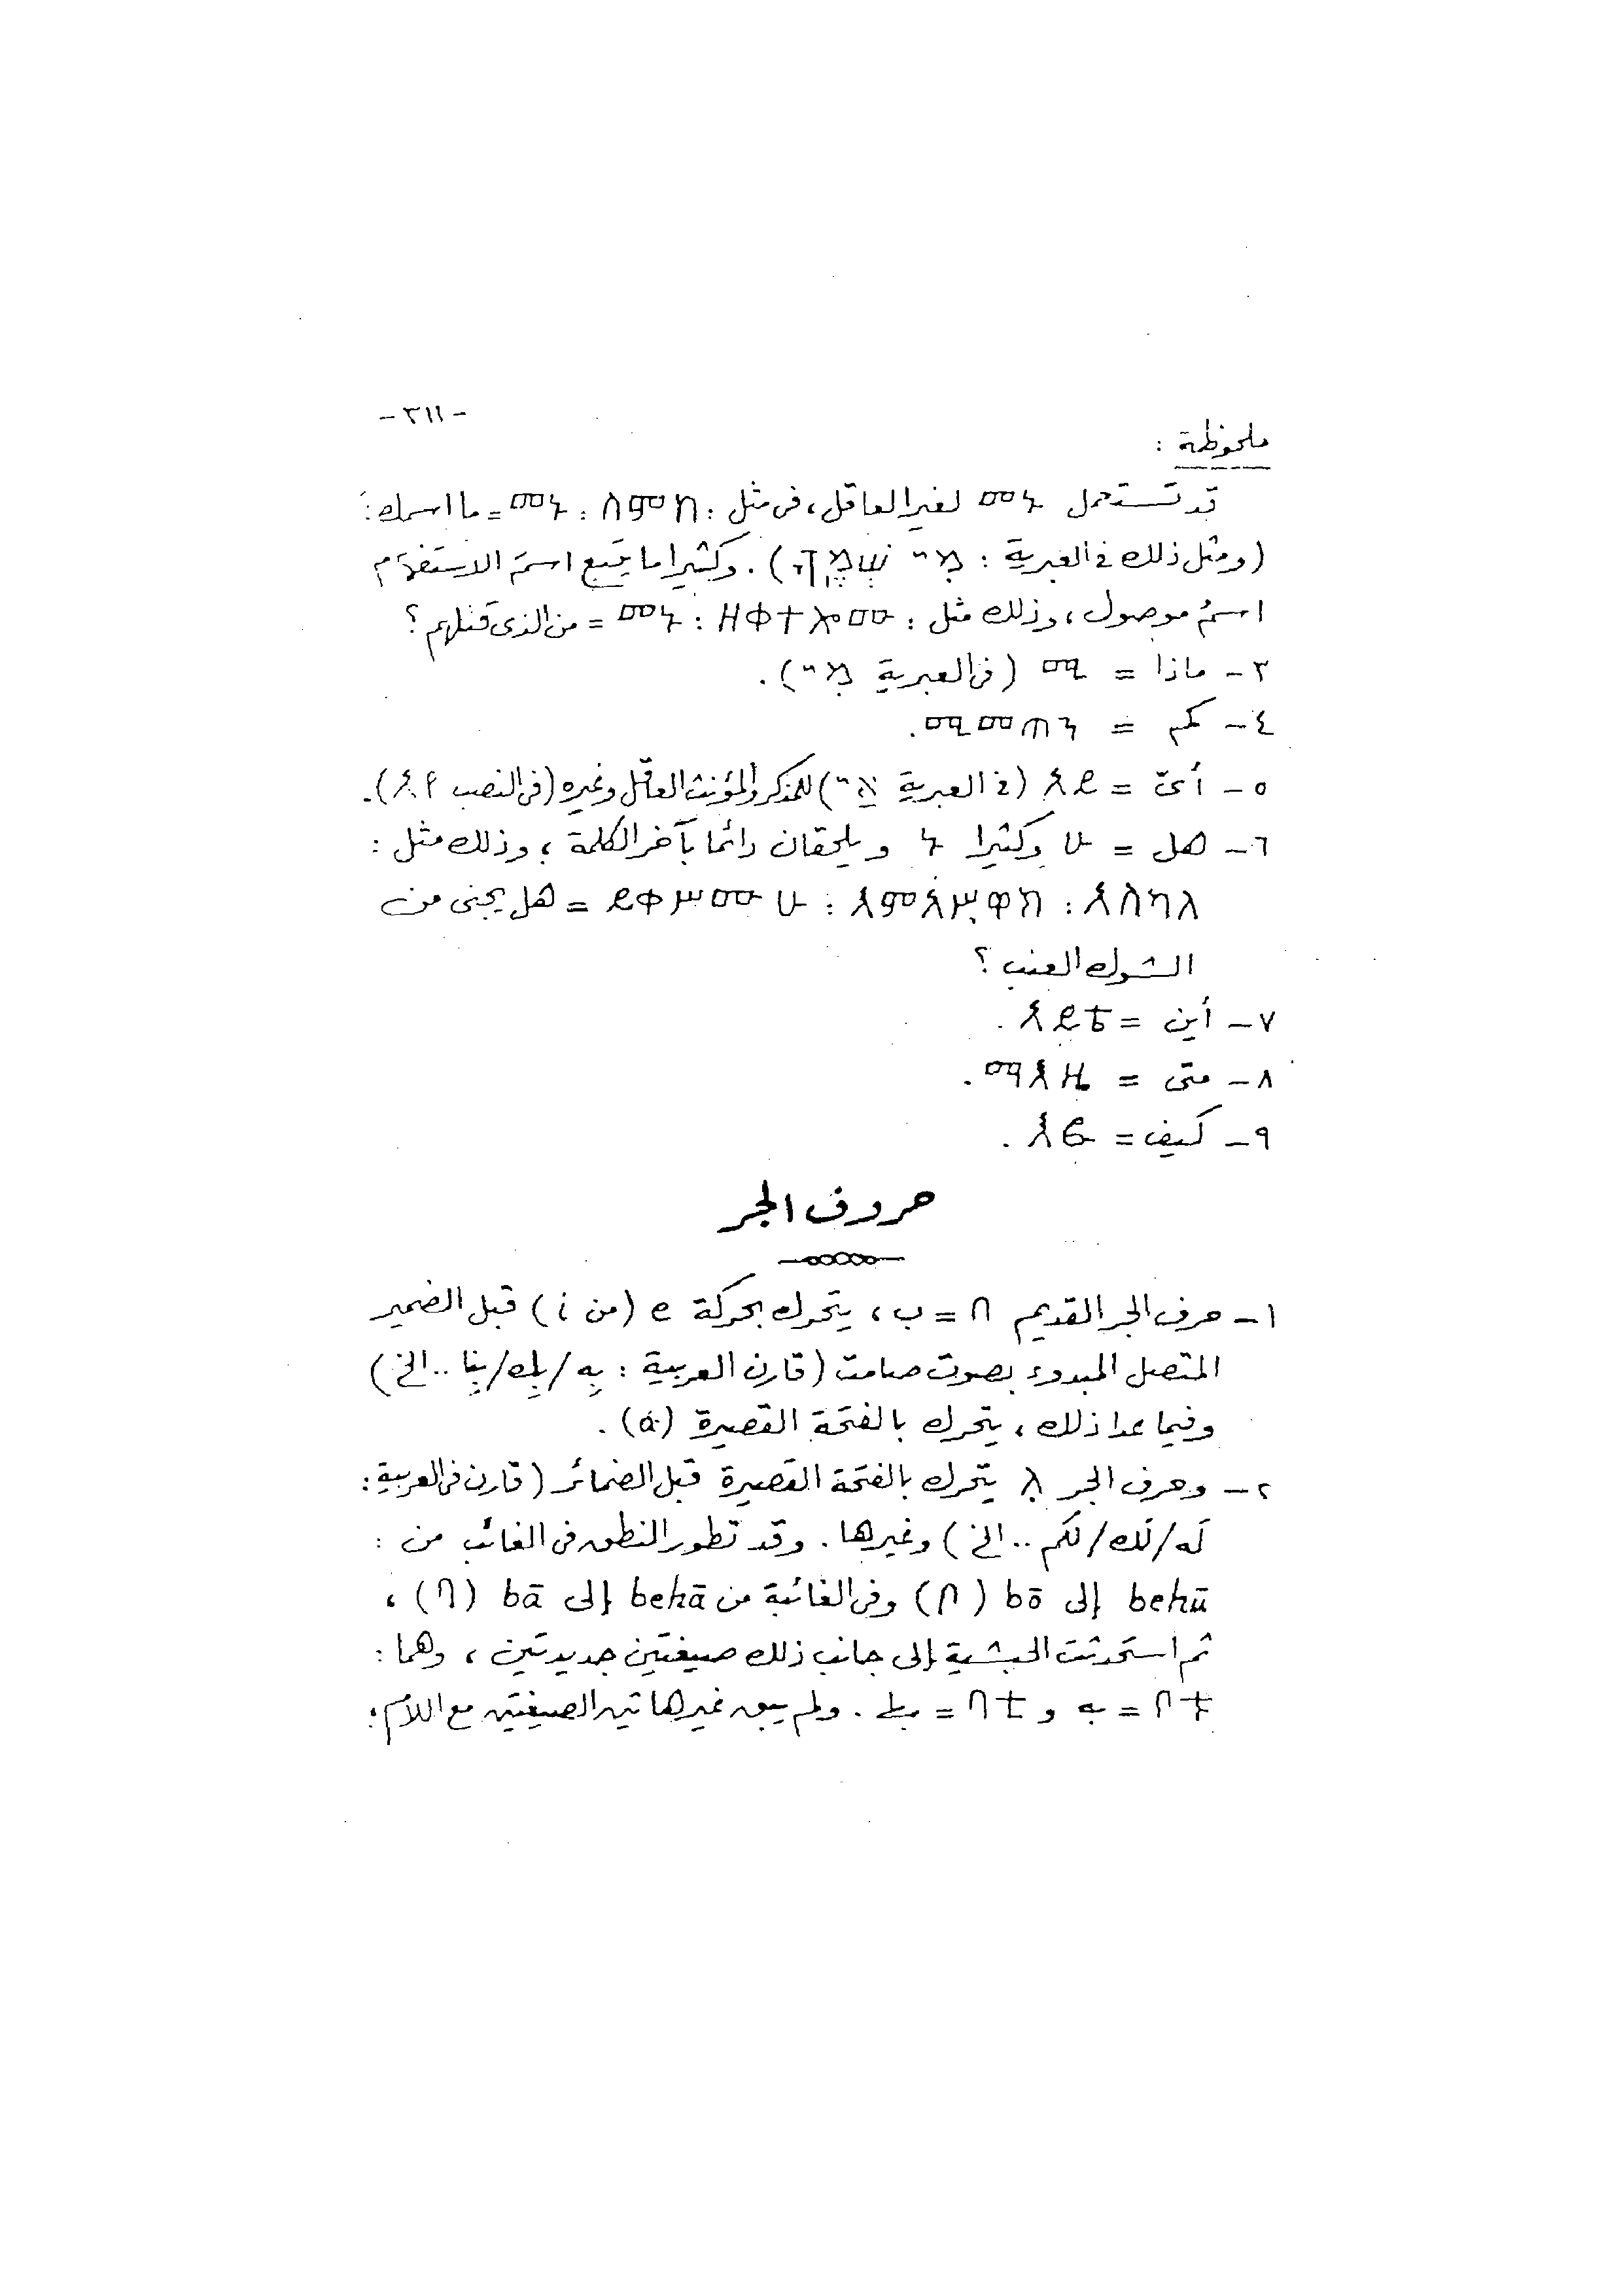 - ٣١١ -
ملحوظة :
قد تستعمل መኑ لغير العاقل، فى مثل : መኑ : ስምከ = ما اسمك؛
(ومثل ذلك فى العبرية : מִי שְׁמֶךָ). وكثيرا ما يَتبع اسمَ الاستفهام
اسمُ موصول، وذلك مثل : መኑ : ዘቀተሎሙ = من الذى قتلهم؟
٣- ماذا = ማ (فى العبرية מִי).
٤- كم = ማመጠን.
٥- أىّ = አይ (فى العبرية אֵי) للمذكر والمؤنث العاقل وغيره (فى النصب አየ).
٦- هل = ሁ وكثيرا ኑ ويلحقان دائما بآخر الكلمة؛ وذلك مثل :
ይቀሥሙሁ : እምአሥዋክ : አስካለ = هل يجنى من
الشوك العنب؟
٧- أين = አይቴ .
٨- متى = ማእዜ .
٩- كيف = እፎ .
حروف الجر
١- حرف الجر القديم በ = ب، يتحرك بحركة e (من i) قبل الضمير
المتصل المبدوء بصوت صامت (قارن العربية : بِه/بِك/بِنا .. الخ)
وفيما عدا ذلك، يتحرك بالفتحة القصيرة (a) .
٢- وحرف الجر ለ يتحرك بالفتحة القصيرة قبل الضمائر (قارن فى العربية :
لَه/لَك/لَكم .. الخ) وغيرها. وقد تطور النطق فى الغائب من :
behū إلى bō (ቦ) وفى الغائبة من behā إلى bā (ባ)،
ثم استحدثت الحبشية إلى جانب ذلك صيغتين جديدتين، وهما :
ቦቱ = به و ባቲ = بها . ولم يبق غير هاتين الصيغتين مع اللام؛